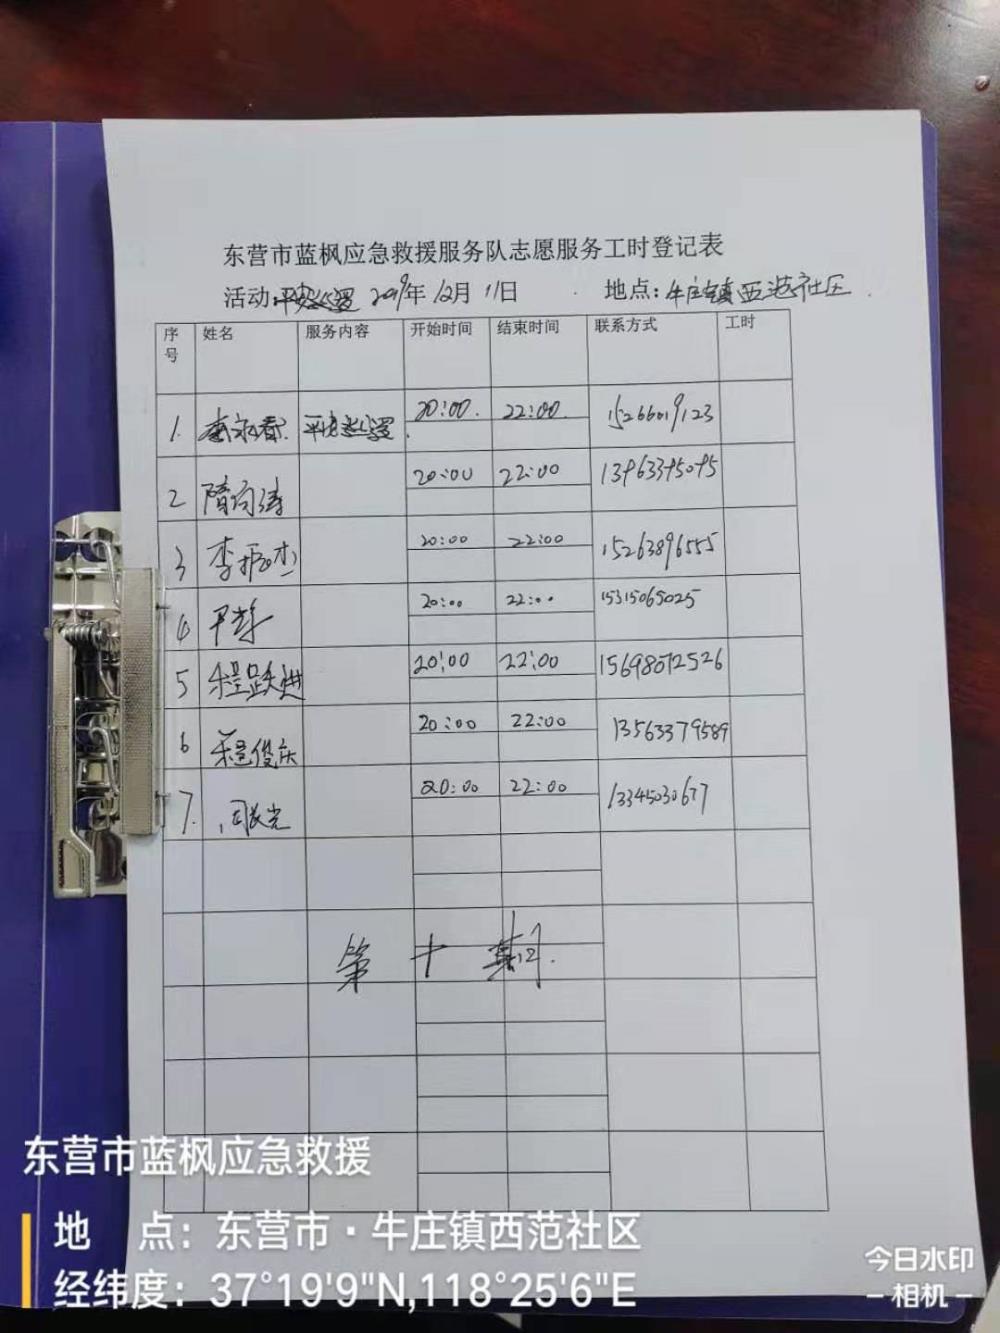 东营市蓝枫应急救援服务队志愿服务工时登记表
活动: 2019年12月11日 地点:牛庄镇西范社区
序号 姓名 服务内容 开始时间 结束时间 联系方式 工时
1. 20:00. 22:00. 15266019123
2 隋向涛 20:00 22:00 13963395095
3 李振杰 20:00 22:00 15263896555
4 20:00 22:00 15315065025
5 程跃进 20:00 22:00 15698072526
6 程俊庆 20:00 22:00 13563379589
7. 20:00 22:00 13345030677
第十期.
东营市蓝枫应急救援
地 点：东营市·牛庄镇西范社区
经纬度：37°19'9"N,118°25'6"E
今日水印
-相机-